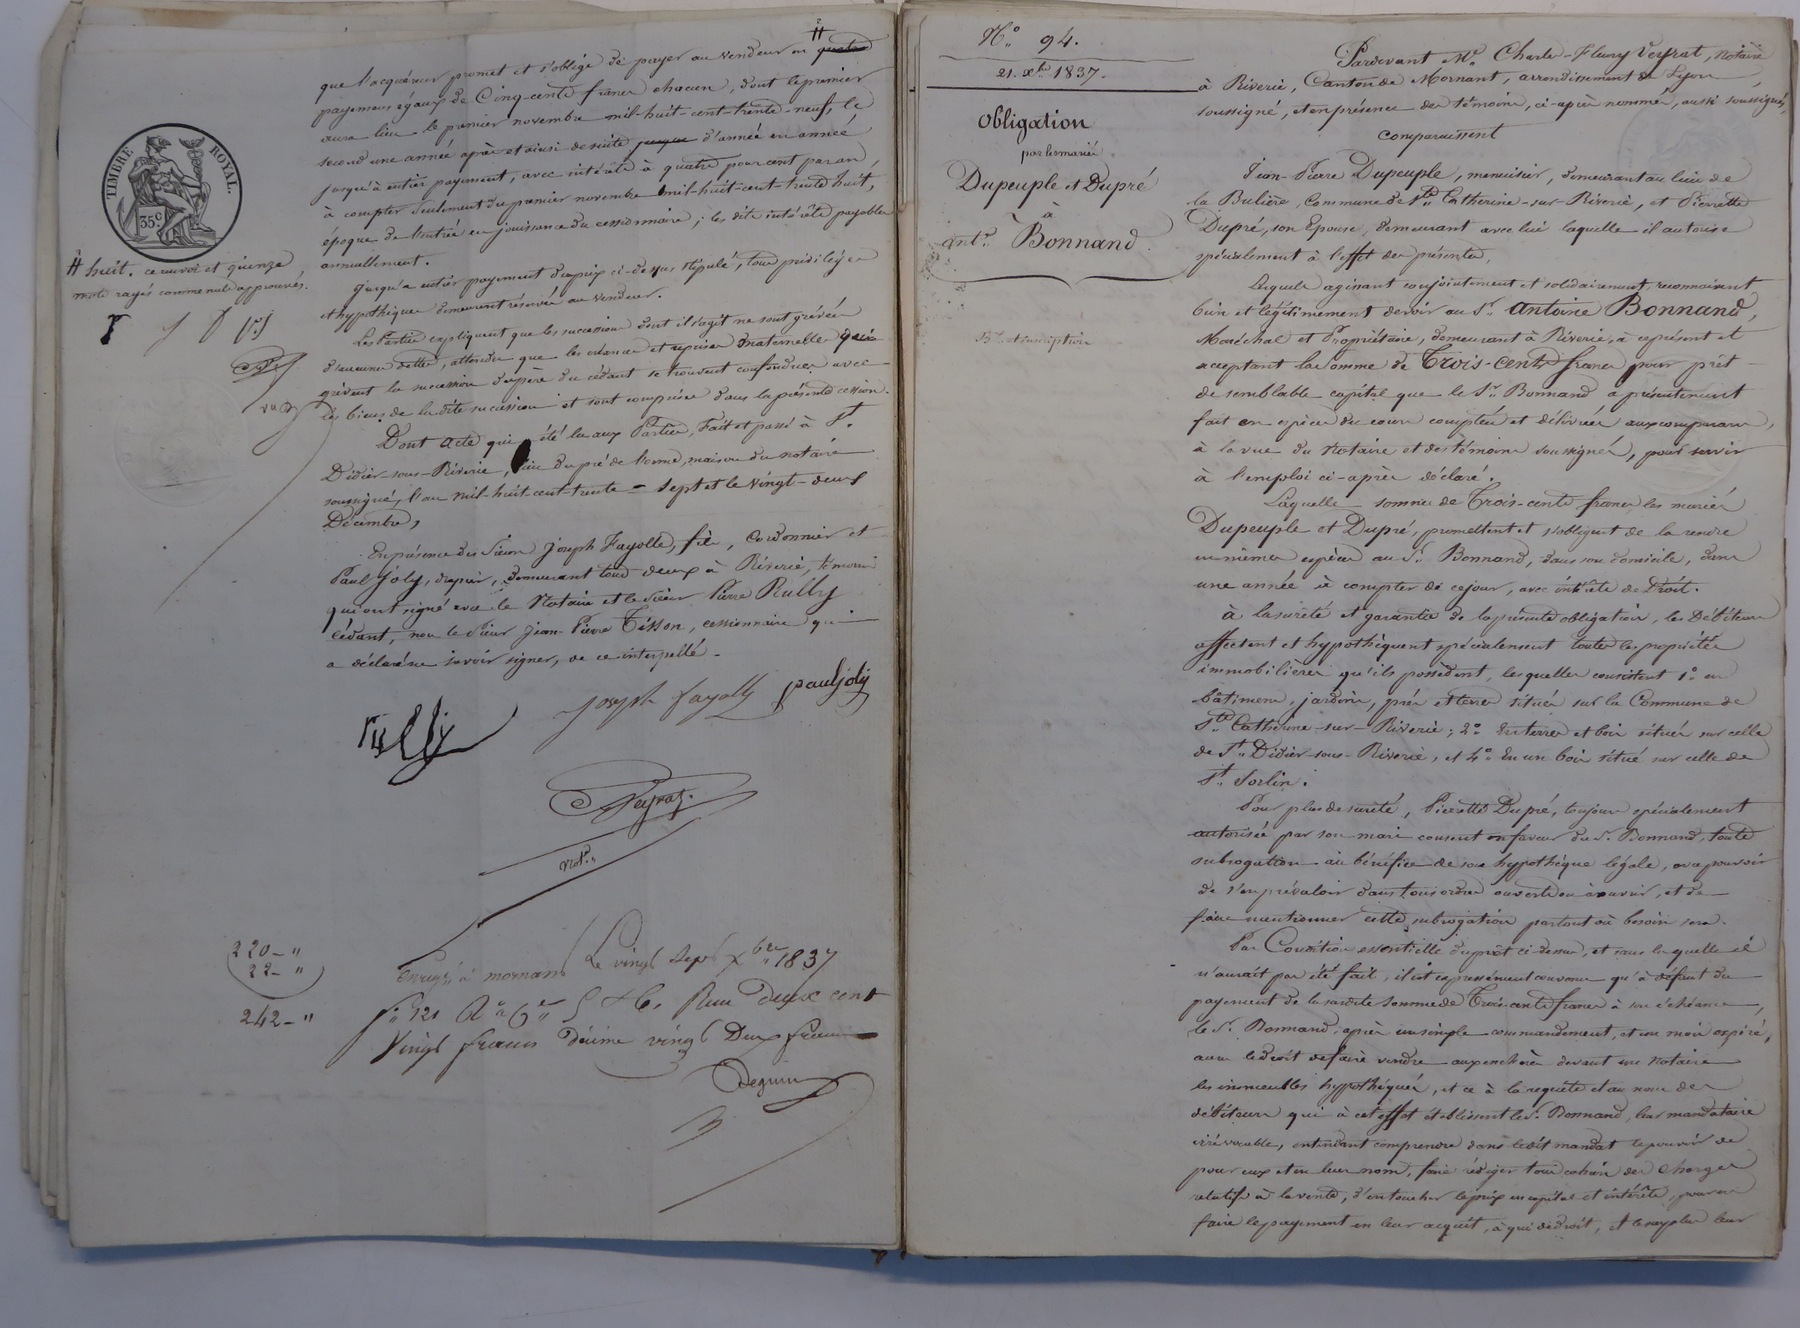 que l'acquéreur promet et s'oblige de payer au vendeur en quatre
payemens égaux de Cinq-cents francs chacun, dont le premier
aura lieu le premier novembre mil-huit-cent-trente-neuf, le
second une année après et ainsi de suite jusque d'année en année
jusqu'à entier payement, avec intérêts à quatre pour cent par an
à compter seulement du premier novembre mil-huit-cent-trente huit,
époque de l'entrée en jouissance du cessionnaire; les dits intérêts payables
annuellement.
Jusqu'a entier payement du prix ci-dessus stipulé, tous privilèges
et hypothèques demeurent réservés au vendeur.
Les Parties expliquent que les successions dont il s'agit ne sont grévées
d'aucunes dettes, attendu que les créances et reprises maternelles qui
grévent la succession du père du cédant se trouvent confondues avec
les biens de la dite succession et sont comprises dans la présente cession.
Dont acte qui a été lu aux Parties, Fait et passé à St.
Didier-sous-Riverie, lieu du pré de l'orme, maison du notaire
soussigné, l'an mil-huit-cent-trente-sept et le vingt-deux
Décembre,
En présence des Sieurs Joseph Fayolle, fils, Cordonnier et
Paul Joly, drapier, demeurant tous deux à Riverie, témoins
qui ont signé avec le Notaire et le Sieur Pierre Rully
cédant, non le Sieur Jean-Pierre Tisson, cessionnaire qui
a déclaré ne savoir signer, de ce interpellé.
TIMBRE ROYAL.
35 c
huit. ce renvoi et quinze
mots rayés comme nuls approuvés.
rully
joseph fayolle
paul joly
Veyrat.
Not.re
220 - "
22 - "
242 - "
Enregé à mornant Le vingt Sept Xbre 1837
f° 121 R° Reçu Deux cent
Vingt francs Décime vingt Deux francs
N° 94.
21. Xbre 1837.
Obligation
par les mariés
Dupeuple et Dupré
à
Ant.e Bonnand
Pardevant Me Charle-Fleury Veyrat, Notaire
à Riverie, Canton de Mornant, arrondissement de Lyon
soussigné, et en présence des témoins, ci-après nommés, aussi soussignés,
comparaissent
Jean-Pierre Dupeuple, menuisier, demeurant au lieu de
la Bulière, Commune de Ste Catherine-sur-Riverie, et Pierrette
Dupré, son Epouse, demeurant avec lui laquelle il autorise
spécialement à l'effet des présentes,
Lesquels agissant conjointement et solidairement reconnaissent
bien et légitimement devoir au Sr. Antoine Bonnand,
Maréchal et Propriétaire, demeurant à Riverie, à ce présent et
acceptant la somme de Trois-cents francs pour prêt
de semblable capital que le Sr. Bonnand a présentement
fait en espèces du cours comptées et délivrées aux comparans,
à la vue du Notaire et des témoins soussignés, pour servir
à l'emploi ci-après déclaré.
Laquelle somme de Trois-cents francs les mariés
Dupeuple et Dupré promettent et s'obligent de la rendre
en mêmes espèces au Sr. Bonnand, dans son domicile, dans
une année à compter de ce jour, avec intérêts de Droit.
à la sureté et garantie de la présente obligation, les Débiteurs
affectent et hypothèquent spécialement toutes les propriétés
immobilières qu'ils possèdent, lesquelles consistent 1° en
bâtimens, jardins, prés et terres situés sur la Commune de
Ste Catherine-sur-Riverie; 2° En terres et bois situés sur celle
de St. Didier-sous-Riverie, et 4° En un bois situé sur celle de
St. Sorlin.
Pour plus de sureté, Pierrette Dupré, toujours spécialement
autorisée par son mari consent en faveur du Sr. Bonnand, toute
subrogation au bénéfice de son hypothèque légale, avec pouvoir
de s'en prévaloir dans tous ordres ouverts ou à ouvrir, et de
faire mentionner cette subrogation partout où besoin sera.
Par Condition essentielle du prêt ci-dessus, et sans laquelle il
n'aurait pas été fait, il est expressément convenu qu'à défaut du
payement de la susdite somme de Trois cents francs à son échéance,
le Sr. Bonnand, après un simple commandement, et un mois expiré,
aura le droit de faire vendre aux enchères devant un Notaire
les immeubles hypothéqués, et ce à la requête et au nom des
débiteurs qui à cet effet établissent le Sr. Bonnand, leur mandataire
irrévocable, entendant comprendre dans ledit mandat le pouvoir de
pour eux et en leur nom, faire rédiger tous cahiers des charges
relatifs à la vente, d'en toucher le prix en capital et intérêts, pour en
faire le payement en leur acquit, à qui de droit, et le surplus leur